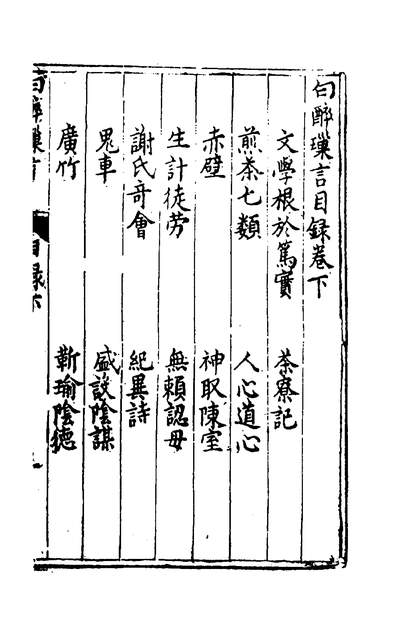 白醉璅言目録卷下
文學根於篤實　茶寮記
煎茶七類　人心道心
赤壁　神取陳室
生計徒劳　無賴認母
謝氏奇會　紀異詩
鬼車　盛設陰謀
廣竹　靳瑜陰德
白醉璅言　目録下　一